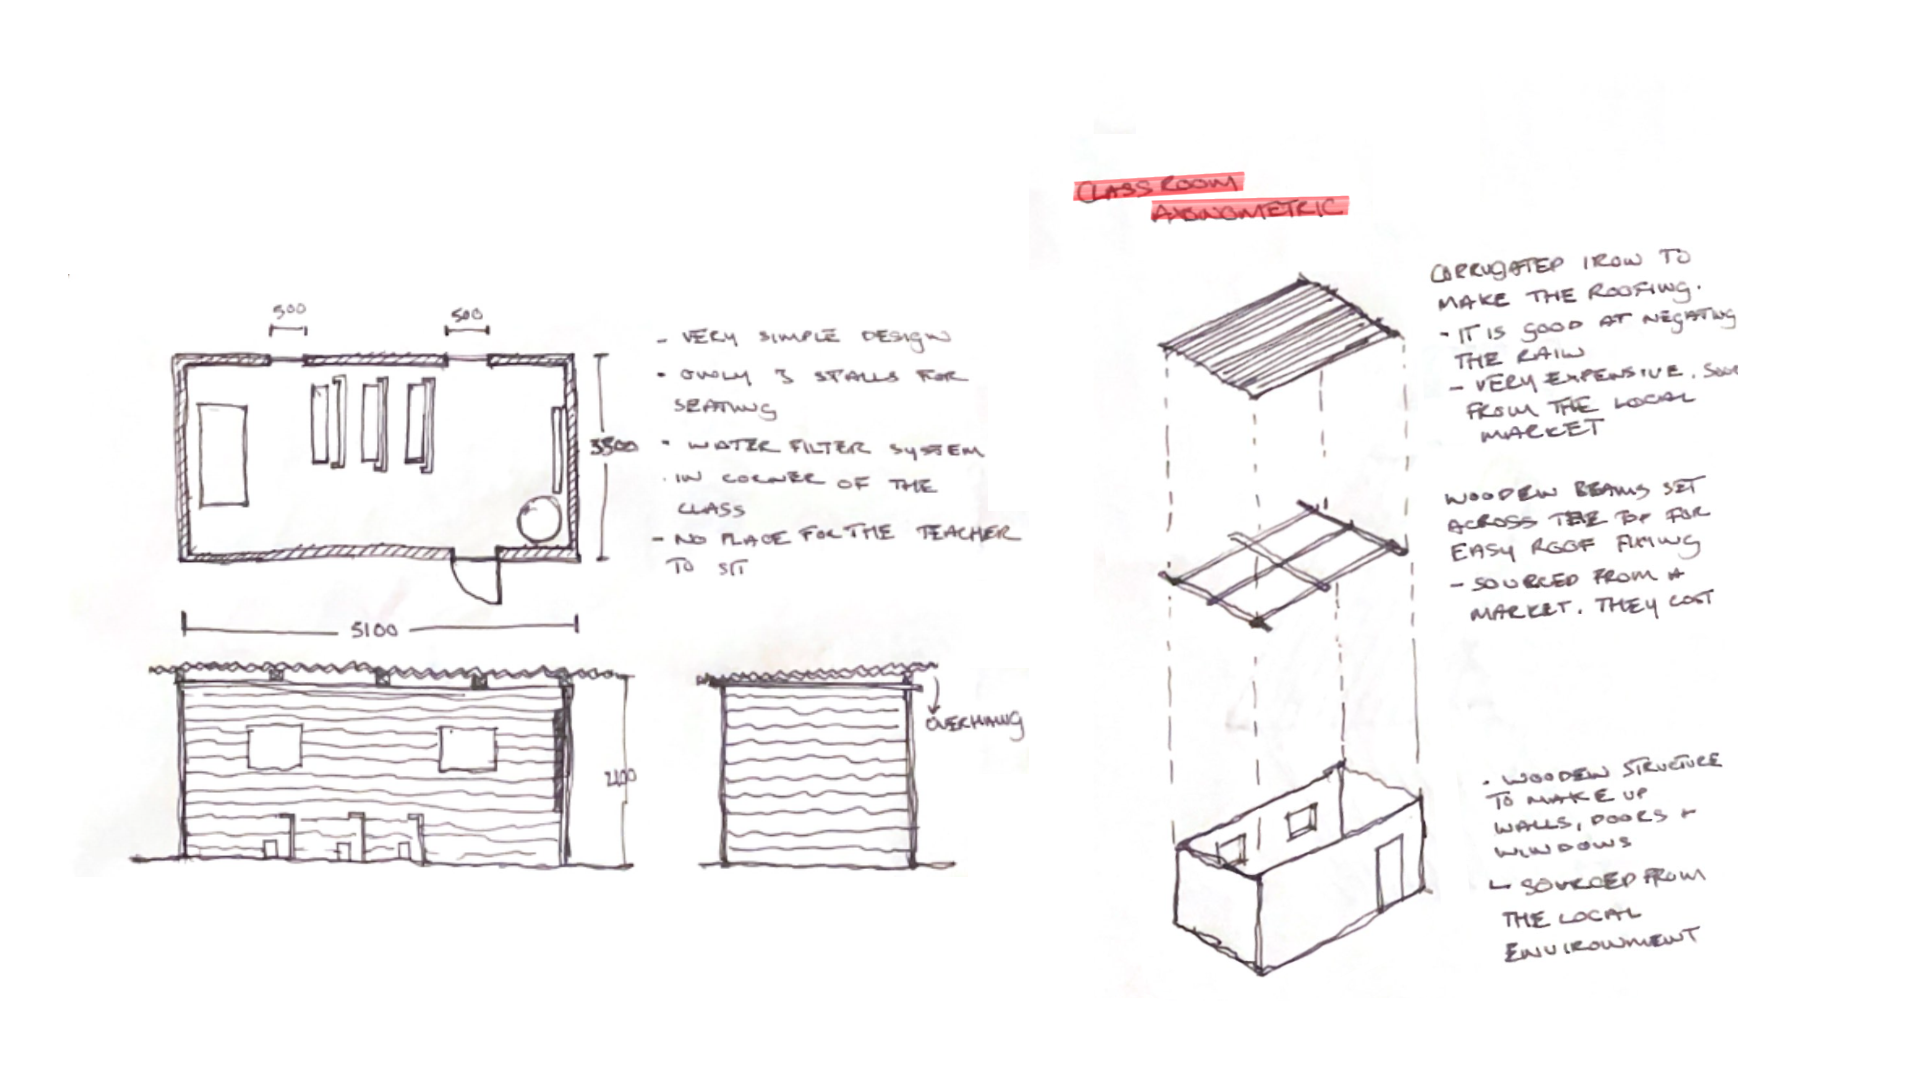 500
500
3500
5100
- VERY SIMPLE DESIGN
- ONLY 3 STALLS FOR
SEATING
- WATER FILTER SYSTEM
- IN CORNER OF THE
CLASS
- NO PLACE FOR THE TEACHER
TO SIT
OVERHANG
CLASSROOM
AXONOMETRIC
CORRUGATED IRON TO
MAKE THE ROOFING.
- IT IS GOOD AT NEGATING
THE RAIN
- VERY EXPENSIVE.
FROM THE LOCAL
MARKET
WOODEN BEAMS SET
ACROSS THE TOP FOR
EASY ROOF FIXING
- SOURCED FROM A
MARKET. THEY COST
- WOODEN STRUCTURE
TO MAKE UP
WALLS, DOORS +
WINDOWS
SOURCED FROM
THE LOCAL
ENVIRONMENT